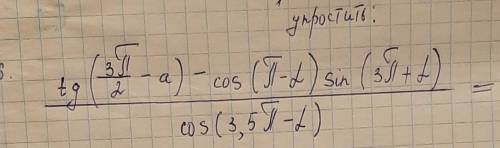 упростить:
6.
tg(3π/2 - a) - cos(π-α) sin(3π+α)
cos(3,5π-α)
=